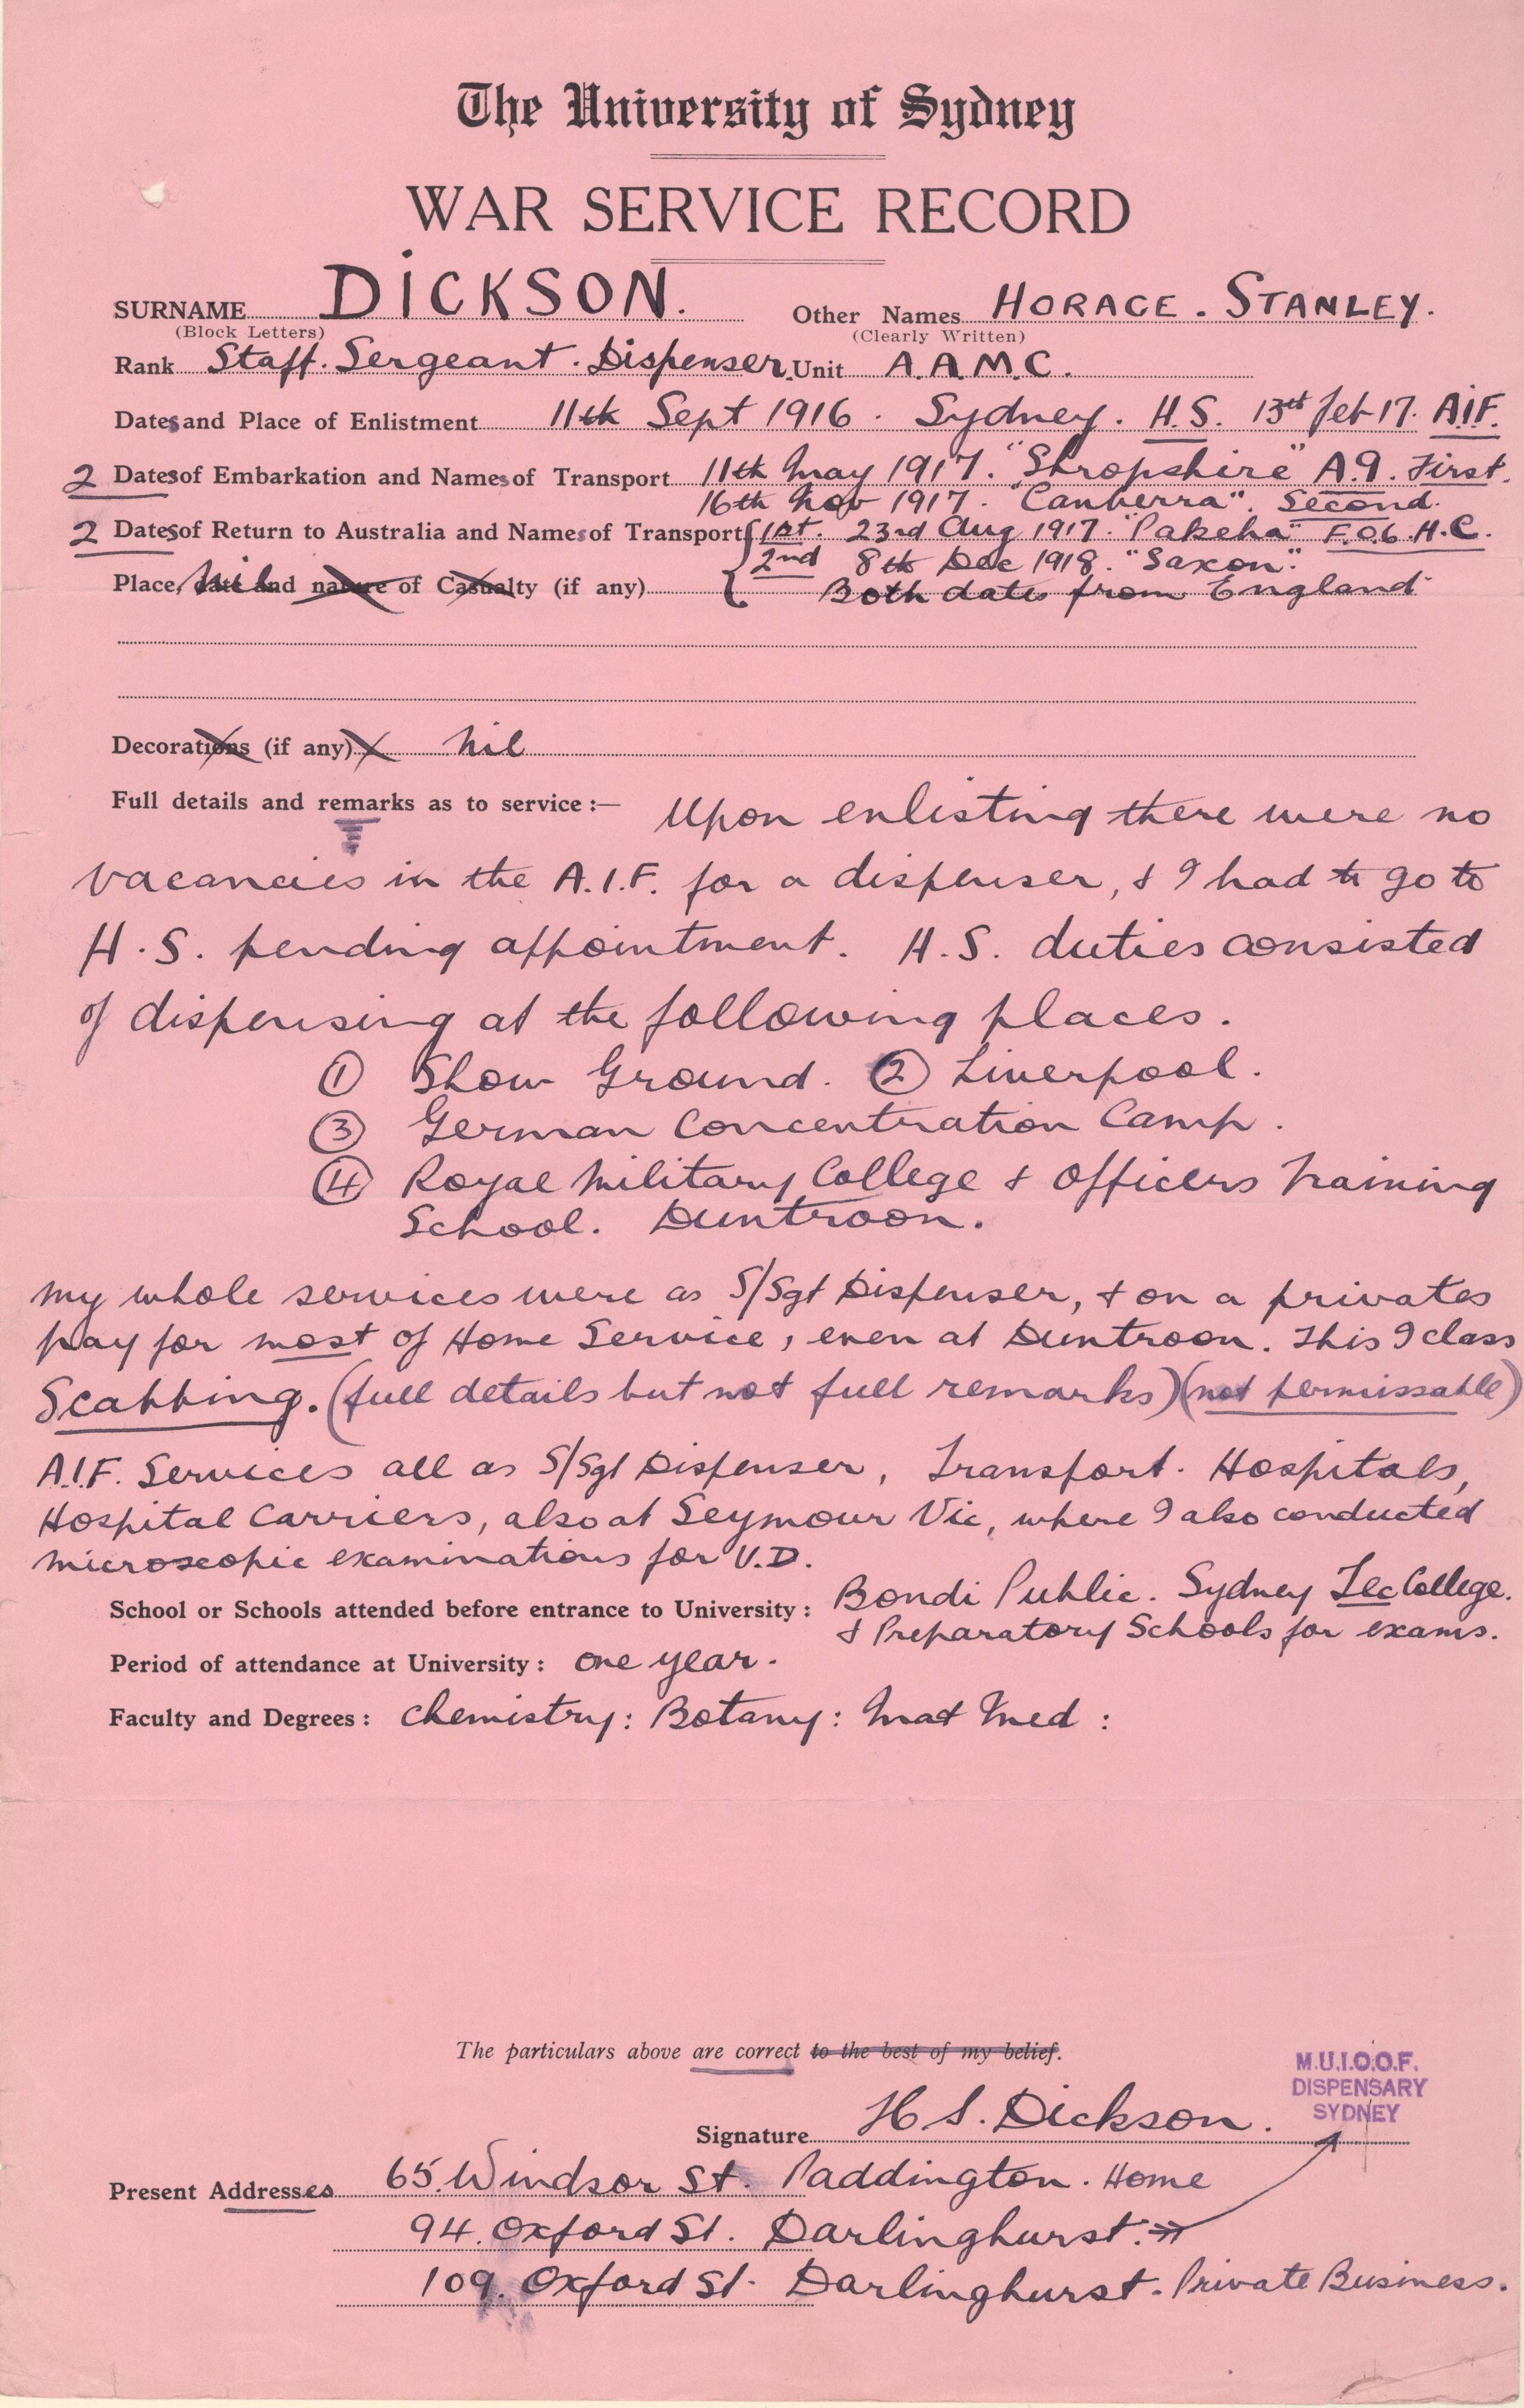 The University of Sydney
WAR SERVICE RECORD
SURNAME DICKSON. Other Names HORACE. STANLEY.
(Block Letters) (Clearly Written)
Rank Staff. Sergeant. Dispenser. Unit A.A.M.C.
Dates and Place of Enlistment 11th Sept 1916. Sydney. H.S. 13th Feb 17. A.I.F.
2 Dates of Embarkation and Names of Transport 11th May 1917. "Shropshire" A.9. First.
16th Nov 1917. "Canberra". Second.
2 Dates of Return to Australia and Names of Transport 1st. 23rd Aug 1917. "Pakeha" F.O.6.H.C.
2nd 8th Dec 1918. "Saxon".
Place, date and nature of Casualty (if any) Nil Both dates from England
Decorations (if any) Nil
Full details and remarks as to service:— Upon enlisting there were no
vacancies in the A.I.F. for a dispenser, & I had to go to
H.S. pending appointment. H.S. duties consisted
of dispensing at the following places.
① Show Ground. ② Liverpool.
③ German Concentration Camp.
④ Royal Military College & Officers Training
School. Duntroon.
My whole services were as S/Sgt Dispenser, & on a privates
pay for most of Home Service, even at Duntroon. This I class
Scabbing. (full details but not full remarks) (not permissable)
A.I.F. Services all as S/Sgt Dispenser, Transport. Hospitals,
Hospital Carriers, also at Seymour Vic, where I also conducted
microscopic examinations for V.D.
School or Schools attended before entrance to University: Bondi Public. Sydney Tec College.
& Preparatory Schools for exams.
Period of attendance at University: One year.
Faculty and Degrees: Chemistry: Botany: Mat Med:
The particulars above are correct to the best of my belief.
M.U.I.O.O.F.
DISPENSARY
SYDNEY
Signature H S. Dickson.
Present Addresses 65. Windsor St. Paddington. Home
94. Oxford St. Darlinghurst.
109. Oxford St. Darlinghurst. Private Business.